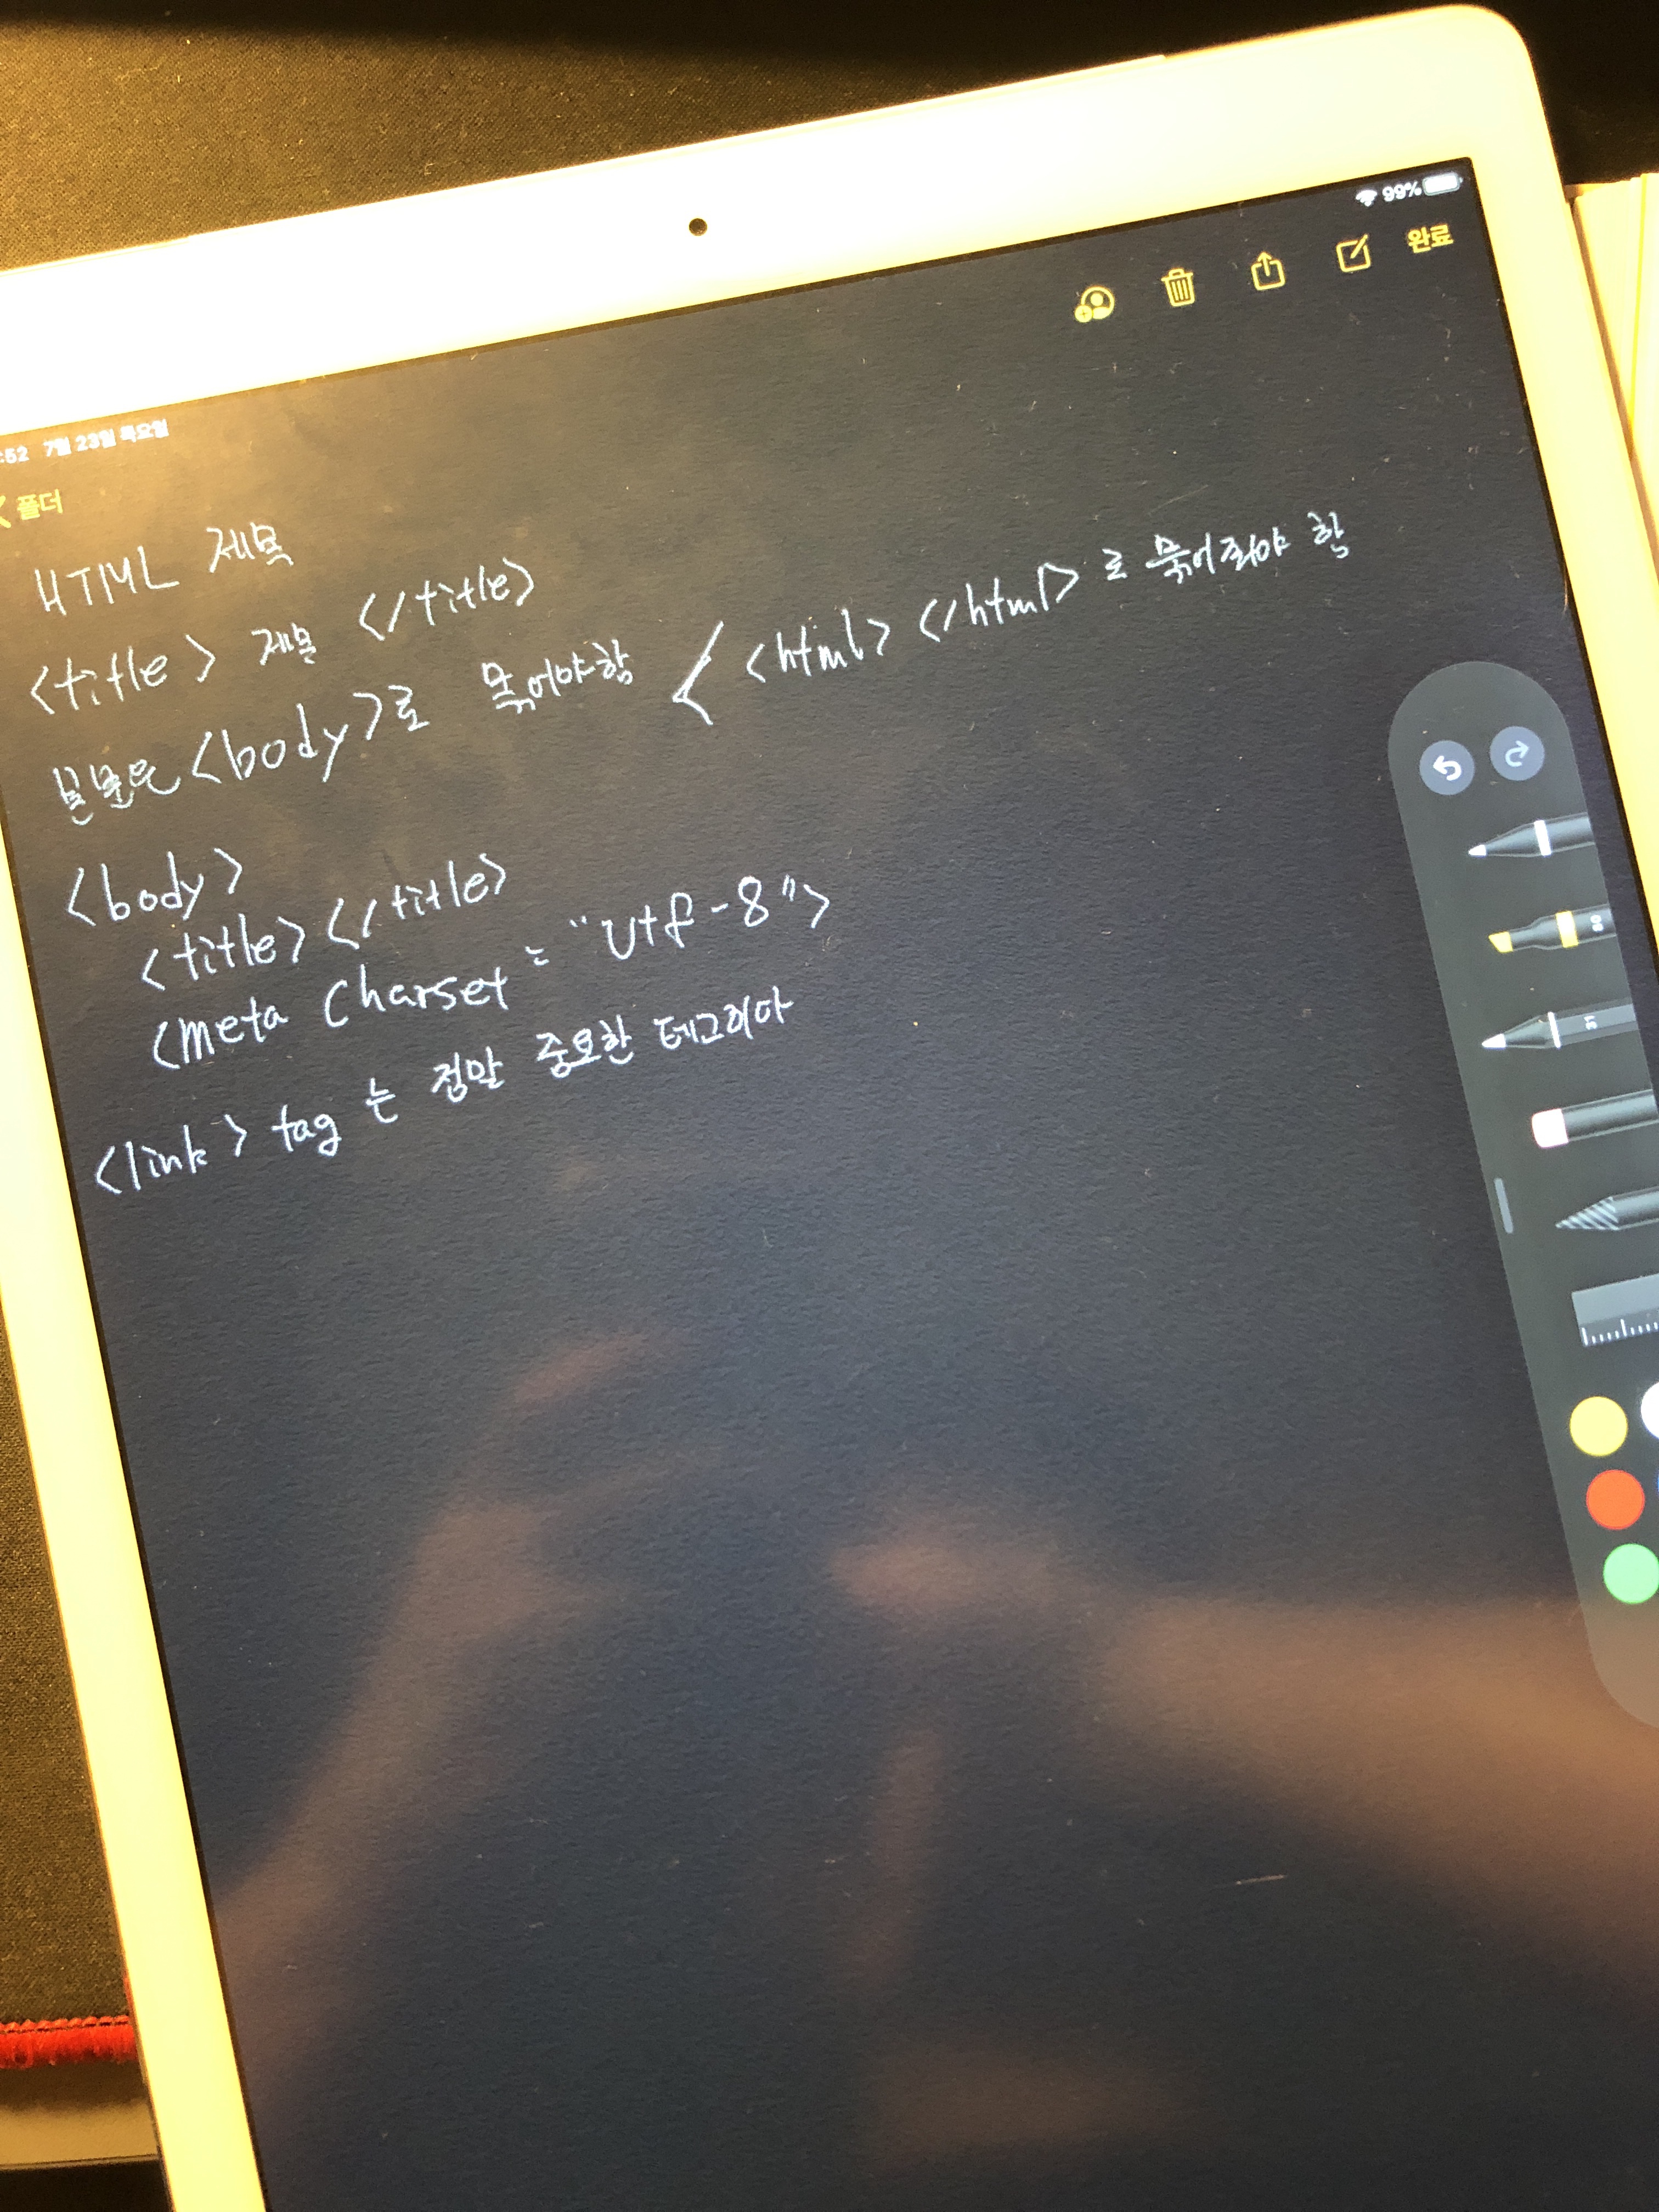 99%
완료
:52 7월 23일 목요일
폴더
HTML 제목
<title> 제목 </title>
본문은 <body>로 묶어야함 < <html> </html> 로 묶어줘야 함
<body>
<title></title>
<meta Charset = "Utf-8">
<link> tag 는 정말 중요한 테그리아